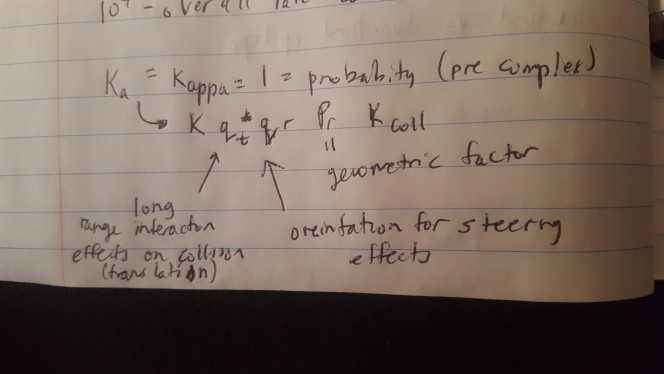 10⁹ - overall rate
Ka = Kappa = 1 = probabity (pre complex)
↳ K qt* qr r Pr Kcoll
"
geometric factor
long
range interacton
effects on collison
(translation)
oreintation for steering
effects